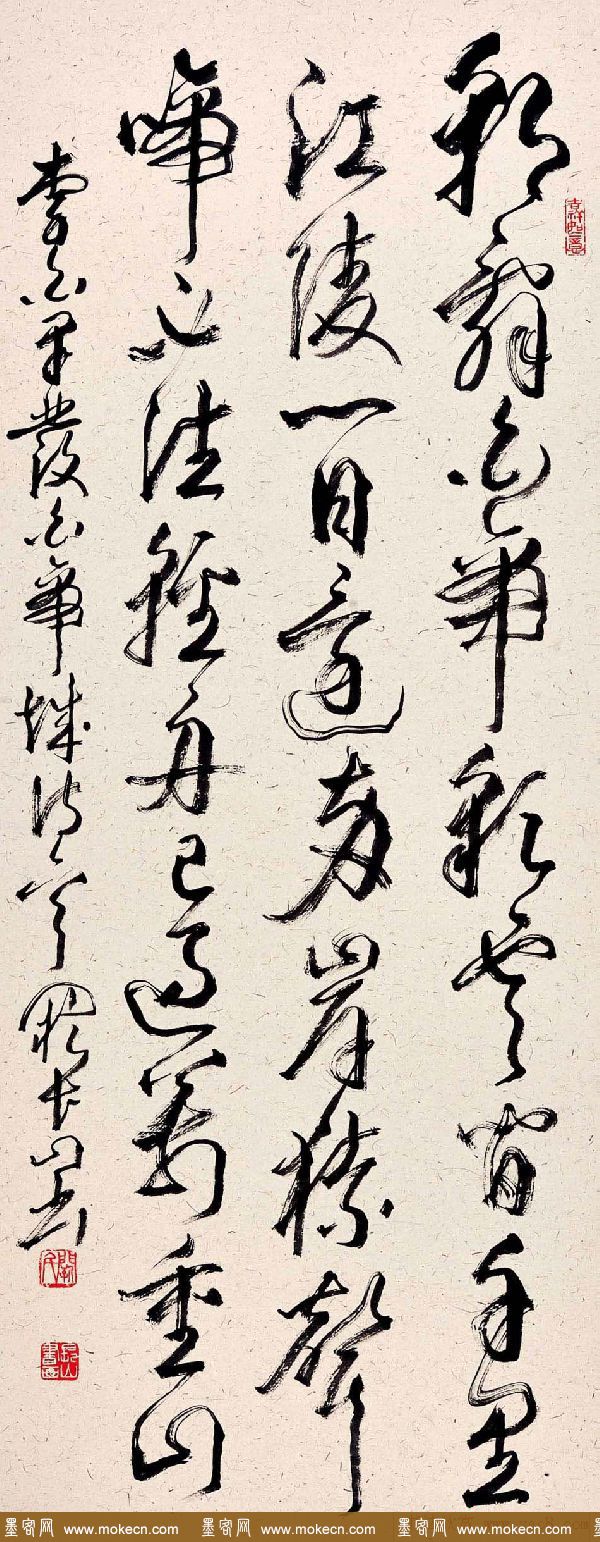 朝辭白帝彩雲間千里
江陵一日還兩岸猿聲
啼不住輕舟已過萬重山
李白早發白帝城詩
吉祥如意
墨客网 www.mokecn.com 墨客网 www.mokecn.com 墨客网 www.mokecn.com